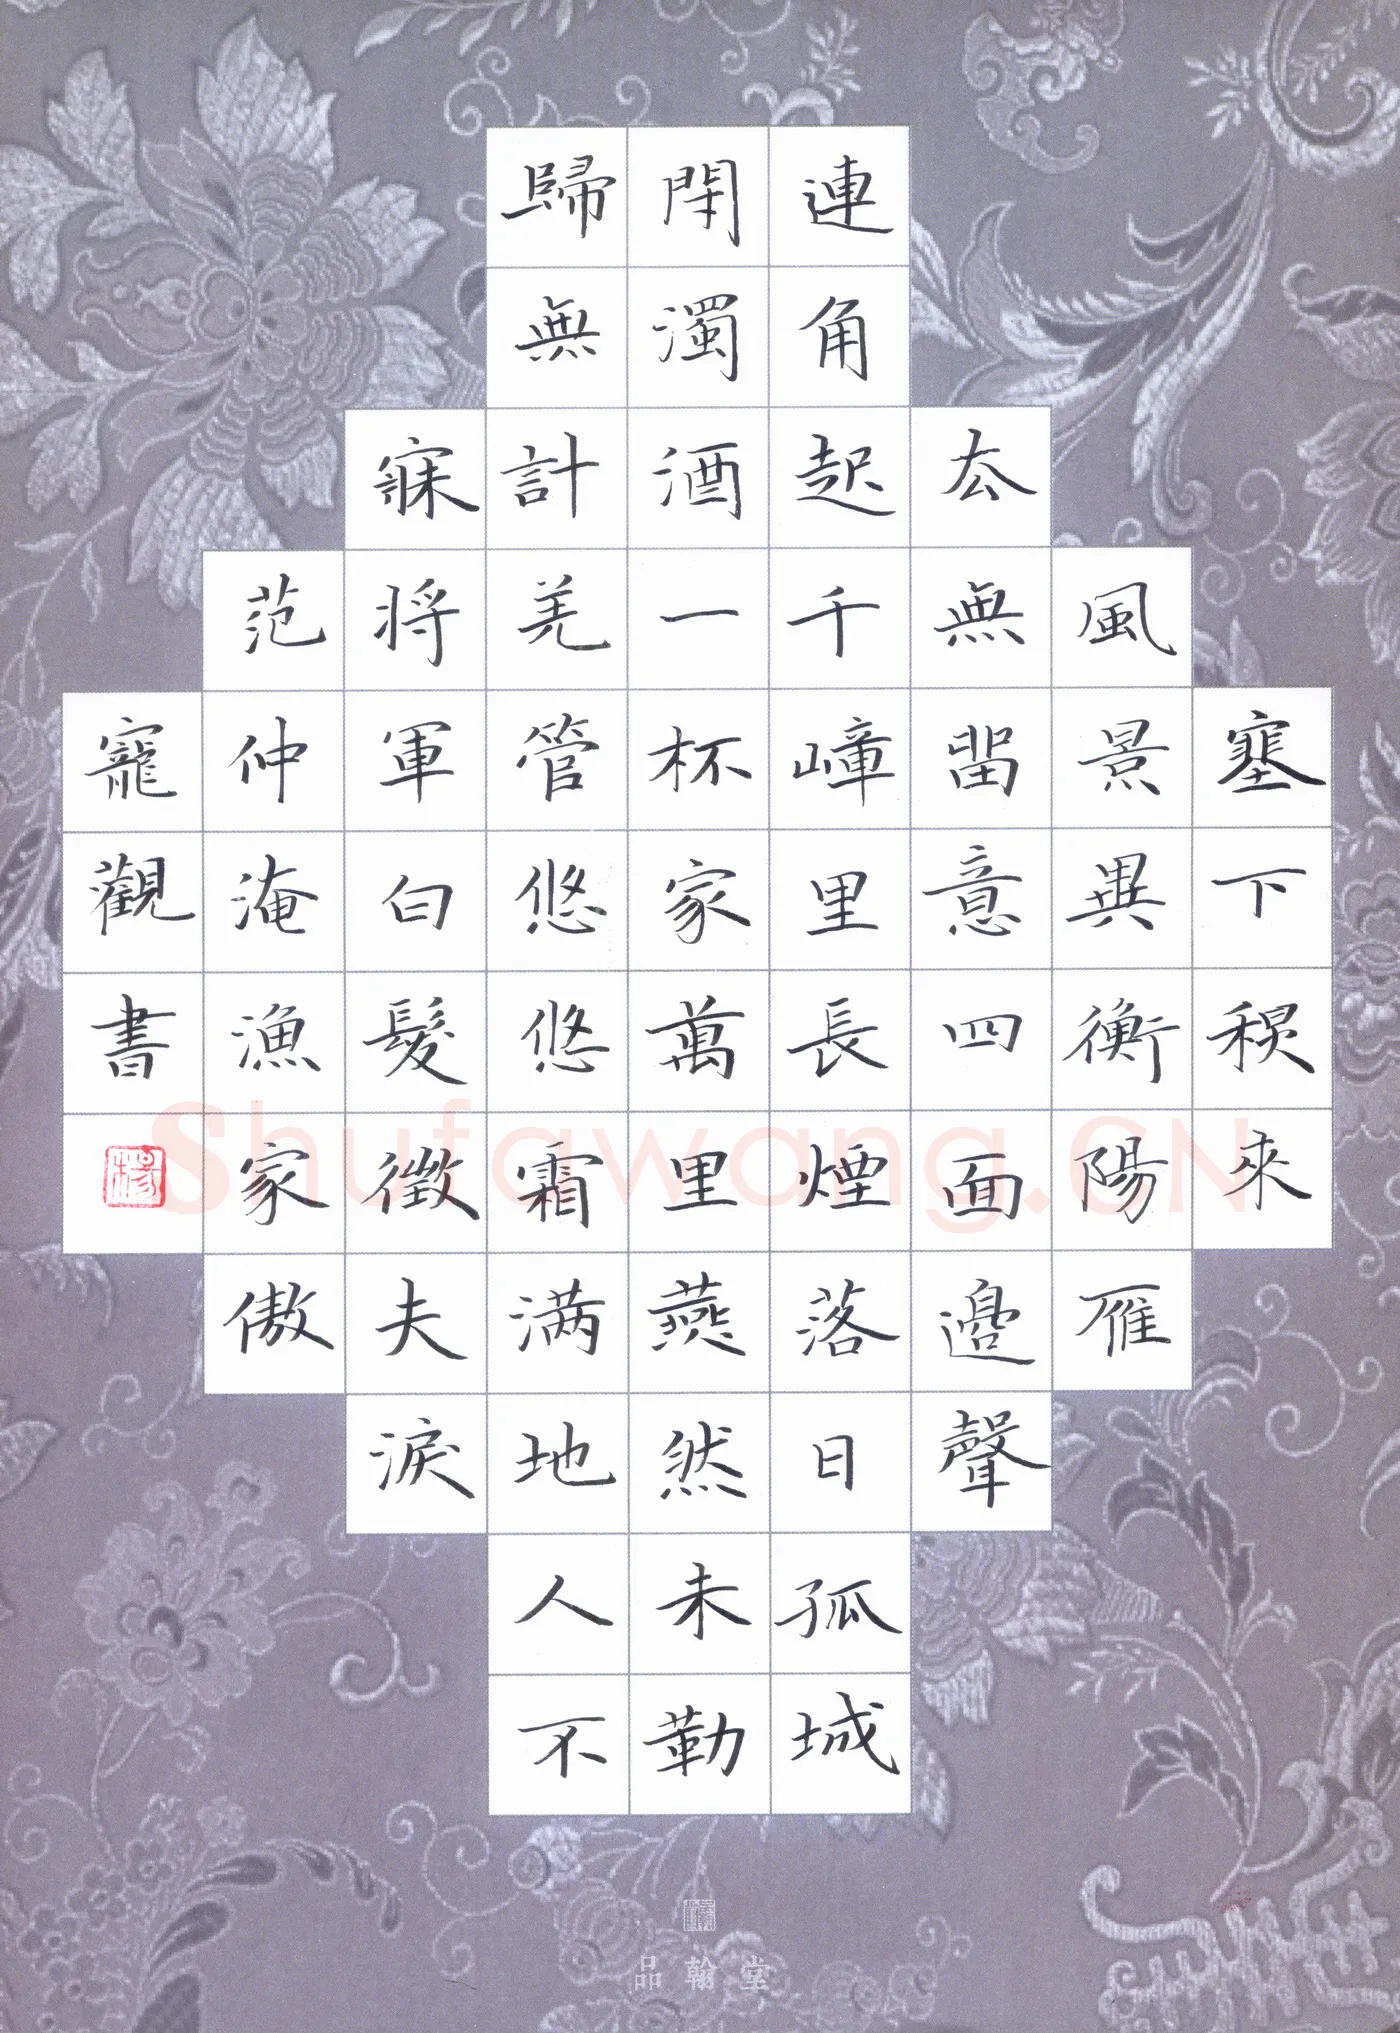 塞下秋來
風景異衡陽雁
去無留意四面邊聲
連角起千嶂里長煙落日孤城
閉濁酒一杯家萬里燕然未勒
歸無計羌管悠悠霜满地人不
寐将軍白髮徵夫淚
范仲淹漁家傲
寵觀書
Shufawang.CN
品翰堂